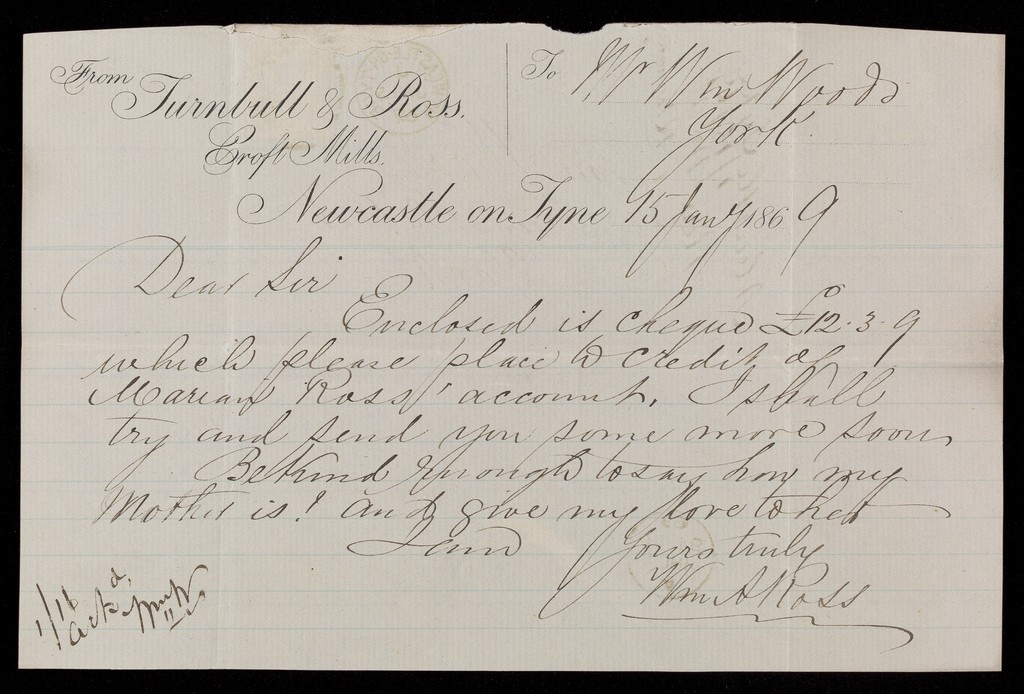 From
Turnbull & Ross,
Croft Mills.
Newcastle on Tyne 15 Jany 1869
To Mr Wm Woods
York
Dear Sir
Enclosed is cheque £12.3.9
which please place to credit of
Marian Ross' account, I shall
try and send you some more soon
Be kind enough to say how my
Mother is! and give my love to her
I am Yours truly
Wm A Ross
1/16
Ackd,